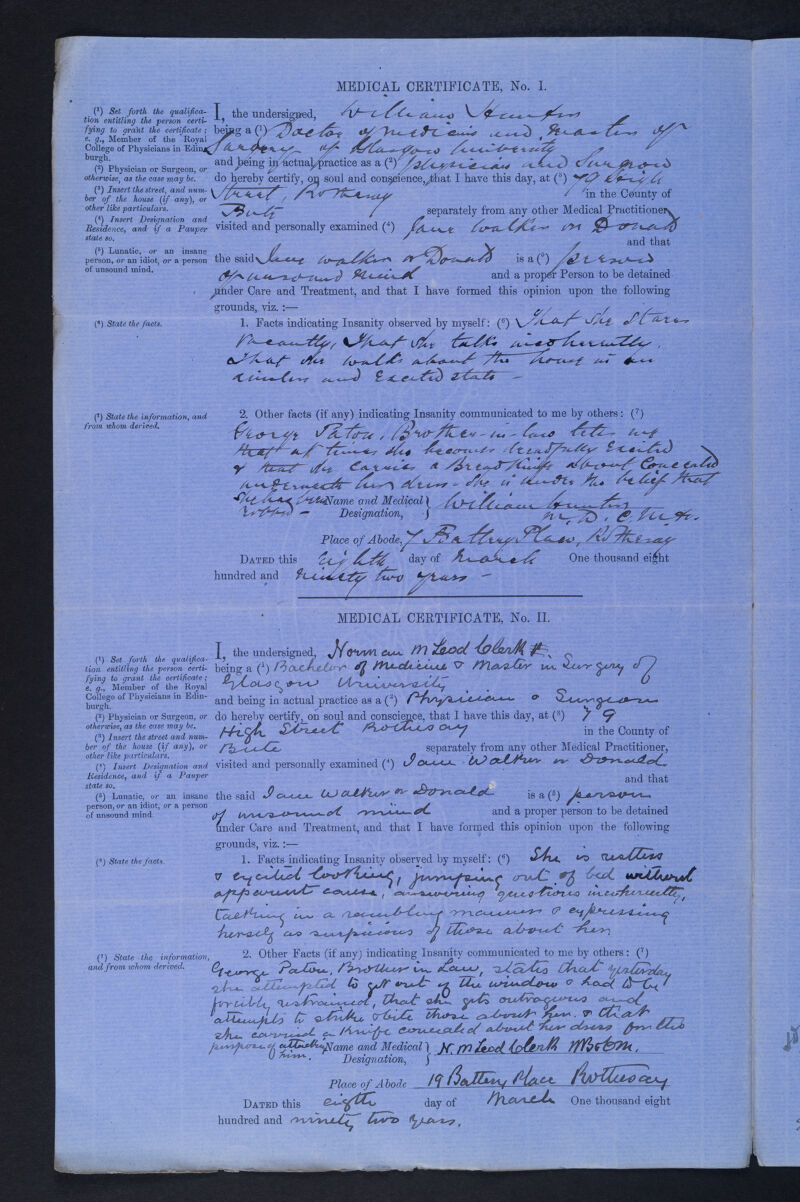 MEDICAL CERTIFICATE, No. I.
(1) Set forth the qualifica-
tion entitling the person certi-
fying to grant the certificate;
e. g., Member of the Royal
College of Physicians in Edin-
burgh.
(2) Physician or Surgeon, or
otherwise, as the case may be.
(3) Insert the street, and num-
ber of the house (if any), or
other like particulars.
(4) Insert Designation and
Residence, and if a Pauper
state so.
(5) Lunatic, or an insane
person, or an idiot, or a person
of unsound mind.
I, the undersigned, William Hunter
being a (1) Doctor of medicine and master of
Surgery of Glasgow University
and being in actual practice as a (2) physician and Surgeon
do hereby certify, on soul and conscience, that I have this day, at (3) 79 High
Street, Rothesay in the County of
Bute separately from any other Medical Practitioner,
visited and personally examined (4) Jane Walker or Donald
and that
the said Jane Walker or Donald is a (5) person
of unsound mind and a proper Person to be detained
under Care and Treatment, and that I have formed this opinion upon the following
grounds, viz. :—
(6) State the facts.
1. Facts indicating Insanity observed by myself: (6) That she stares
vacantly, That she talks incoherently.
That she walks about the house in an
aimless and Excited state —
(7) State the information, and
from whom derived.
2. Other facts (if any) indicating Insanity communicated to me by others: (7)
George Paton, Brother-in-law tells me
that at times she becomes dreadfully Excited
& that she carries a Bread Knife about Concealed
underneath her dress - She is under the belief that
She has been
robbed —
Name and Medical Designation, William Hunter
M.D. C.M. &.
Place of Abode, 7 Battery Place, Rothesay
DATED this Eighth day of March One thousand eight
hundred and Ninety two years —
MEDICAL CERTIFICATE, No. II.
(1) Set forth the qualifica-
tion entitling the person certi-
fying to grant the certificate;
e. g., Member of the Royal
College of Physicians in Edin-
burgh.
(2) Physician or Surgeon, or
otherwise, as the case may be.
(3) Insert the street and num-
ber of the house (if any), or
other like particulars.
(4) Insert Designation and
Residence, and if a Pauper
state so.
(5) Lunatic, or an insane
person, or an idiot, or a person
of unsound mind.
I, the undersigned, Norman McLeod Clerk
being a (1) Bachelor of Medicine & Master in Surgery of
Glasgow University
and being in actual practice as a (2) Physician & Surgeon
do hereby certify, on soul and conscience, that I have this day, at (3) 79
High Street Rothesay in the County of
Bute separately from any other Medical Practitioner,
visited and personally examined (4) Jane Walker or Donald
and that
the said Jane Walker or Donald is a (5) person
of unsound mind and a proper person to be detained
under Care and Treatment, and that I have formed this opinion upon the following
grounds, viz. :—
(6) State the facts.
1. Facts indicating Insanity observed by myself: (6) She is restless
& excited looking, jumping out of bed without
apparent cause, answering questions incoherently,
talking in a rambling manner & expressing
herself as suspicious of those about her
(7) State the information,
and from whom derived.
2. Other Facts (if any) indicating Insanity communicated to me by others: (7)
George Paton, Brother in Law, states that yesterday
she attempted to get out of the window & had to be
forcibly restrained, that she gets outrageous and
attempts to strike & bite those about her. & that
she carried a knife concealed about her dress for the
purpose of attacking
him.
Name and Medical Designation, N. McLeod Clerk MB & CM.
Place of Abode 19 Battery Place Rothesay
DATED this eighth day of March One thousand eight
hundred and ninety two years.